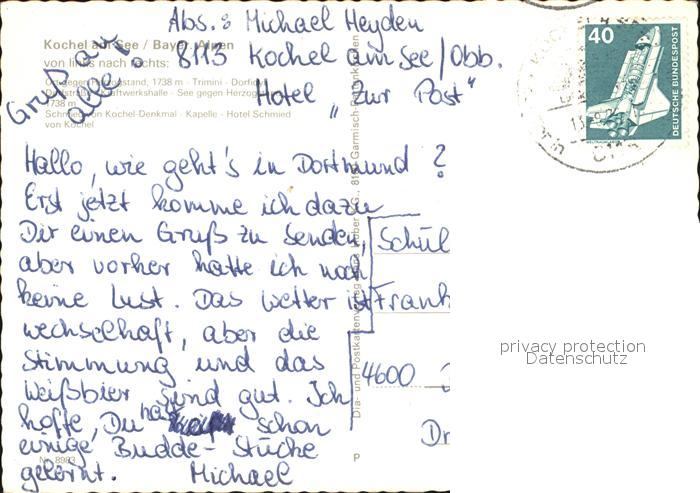 Abs.: Michael Heyden
8113 Kochel am See / Obb.
Hotel „Zur Post“
Gruß an alle!
Kochel am See / Bayer. Alpen
von links nach rechts:
1738 m - Trimini - Dorf
Kraftwerkshalle - See gegen Herzog
1738 m
Schmied von Kochel-Denkmal - Kapelle - Hotel Schmied
von Kochel
40
DEUTSCHE BUNDESPOST
Hallo, wie geht's in Dortmund?
Erst jetzt komme ich dazu
Dir einen Gruß zu senden,
aber vorher hatte ich noch
keine Lust. Das Wetter ist
wechselhaft, aber die
Stimmung und das
Weißbier sind gut. Ich
hoffe, Du hast schon
einige Budde-Stücke
gelernt. Michael
Schül
Frank
4600 D
Dr
Dia- und Postkartenverlag
Garmisch-Partenkirchen
Nr. 8983
P
privacy protection
Datenschutz